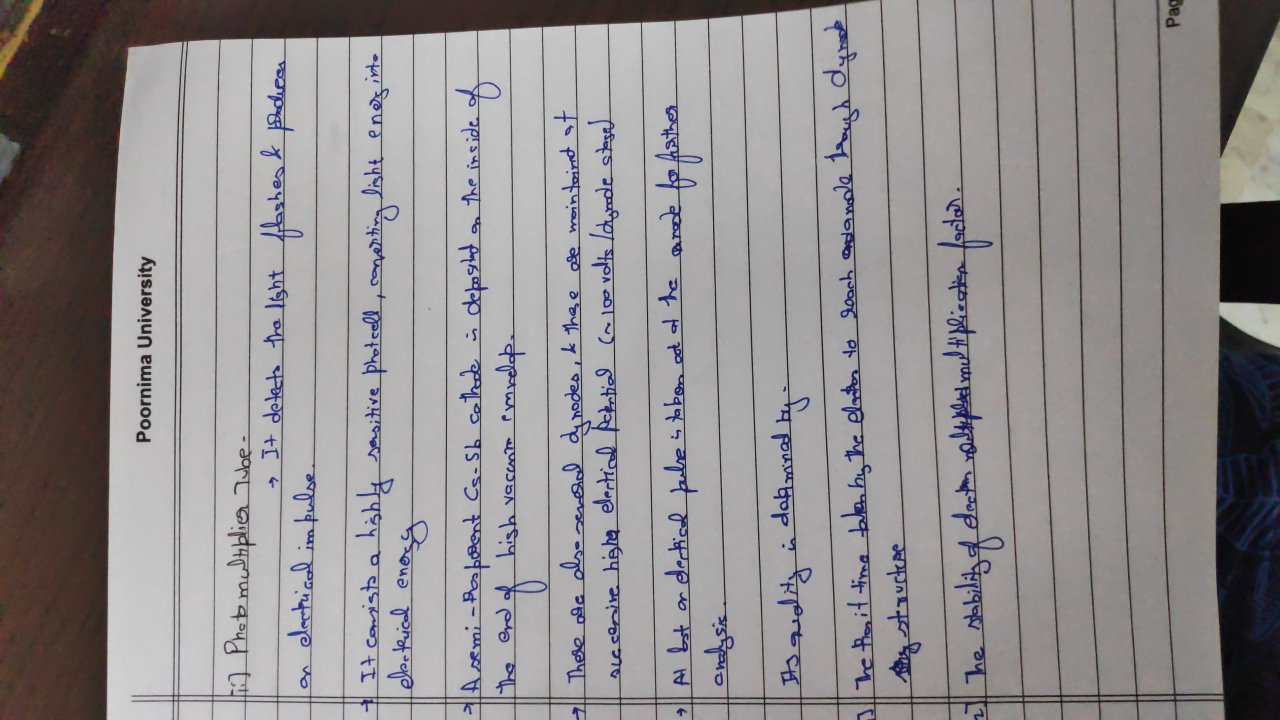 Poornima University
ii] Photomultiplier Tube -
→ It detects the light flashes & produces
an electrical impulse.
→ It consists a highly sensitive photcell, converting light energ into
electrical energy
→ A semi-transparent Cs-Sb cathode is deposited on the inside of
the end of high vaccum envelop.
→ There are also several dynodes, & these are maintained at
successive higher electical potential (~100 volts/dynode stage)
→ At last an electical pulse is taken out at the anode for further
analysis.
Its quality is determined by -
1] The transit time taken by the electron to reach anode trough dynode
structure
2] The stability of electron multiplication factor.
Pag